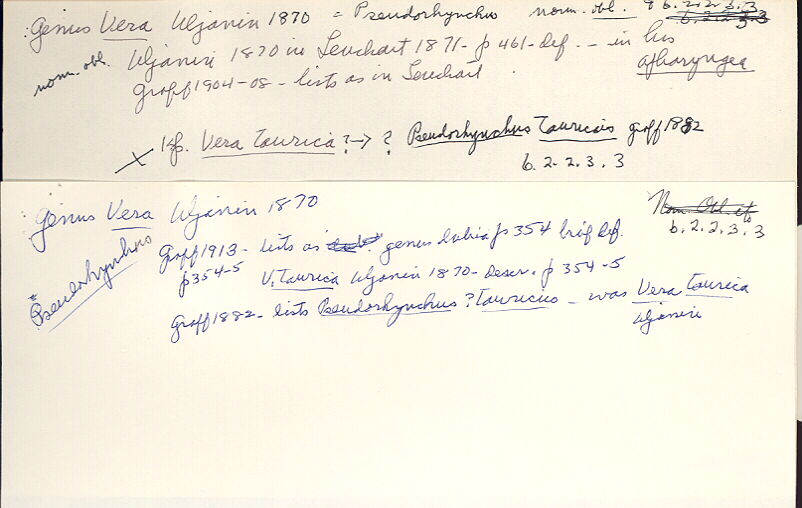 Genus Vera Uljanin 1870 = Pseudorhynchus nom. obl. 6.2.2.3.3
nom. obl. Uljanin 1870 in Leuckart 1871 - p 461 - def. - in his
apharyngea
Graff 1904-08 - lists as in Leuckart
Vera Taurica ? → ? Pseudorhynchus Tauricus Graff 1882
6.2.2.3.3
Genus Vera Uljanin 1870
Nom. Obl. etc
6.2.2.3.3
Pseudorhynchus
Graff 1913 - lists as genus dubia p 354 brief def.
p 354-5 V. Taurica Uljanin 1870 - descr. p 354-5
Graff 1882 - lists Pseudorhynchus ? Tauricus - was Vera Taurica
Uljanin